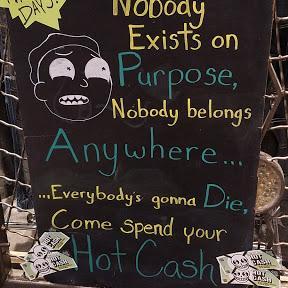 DAYS!
Nobody
Exists on
Purpose,
Nobody belongs
Anywhere...
...Everybody's gonna Die,
Come spend your
Hot Cash
HOT
CASH
HOT
CASH